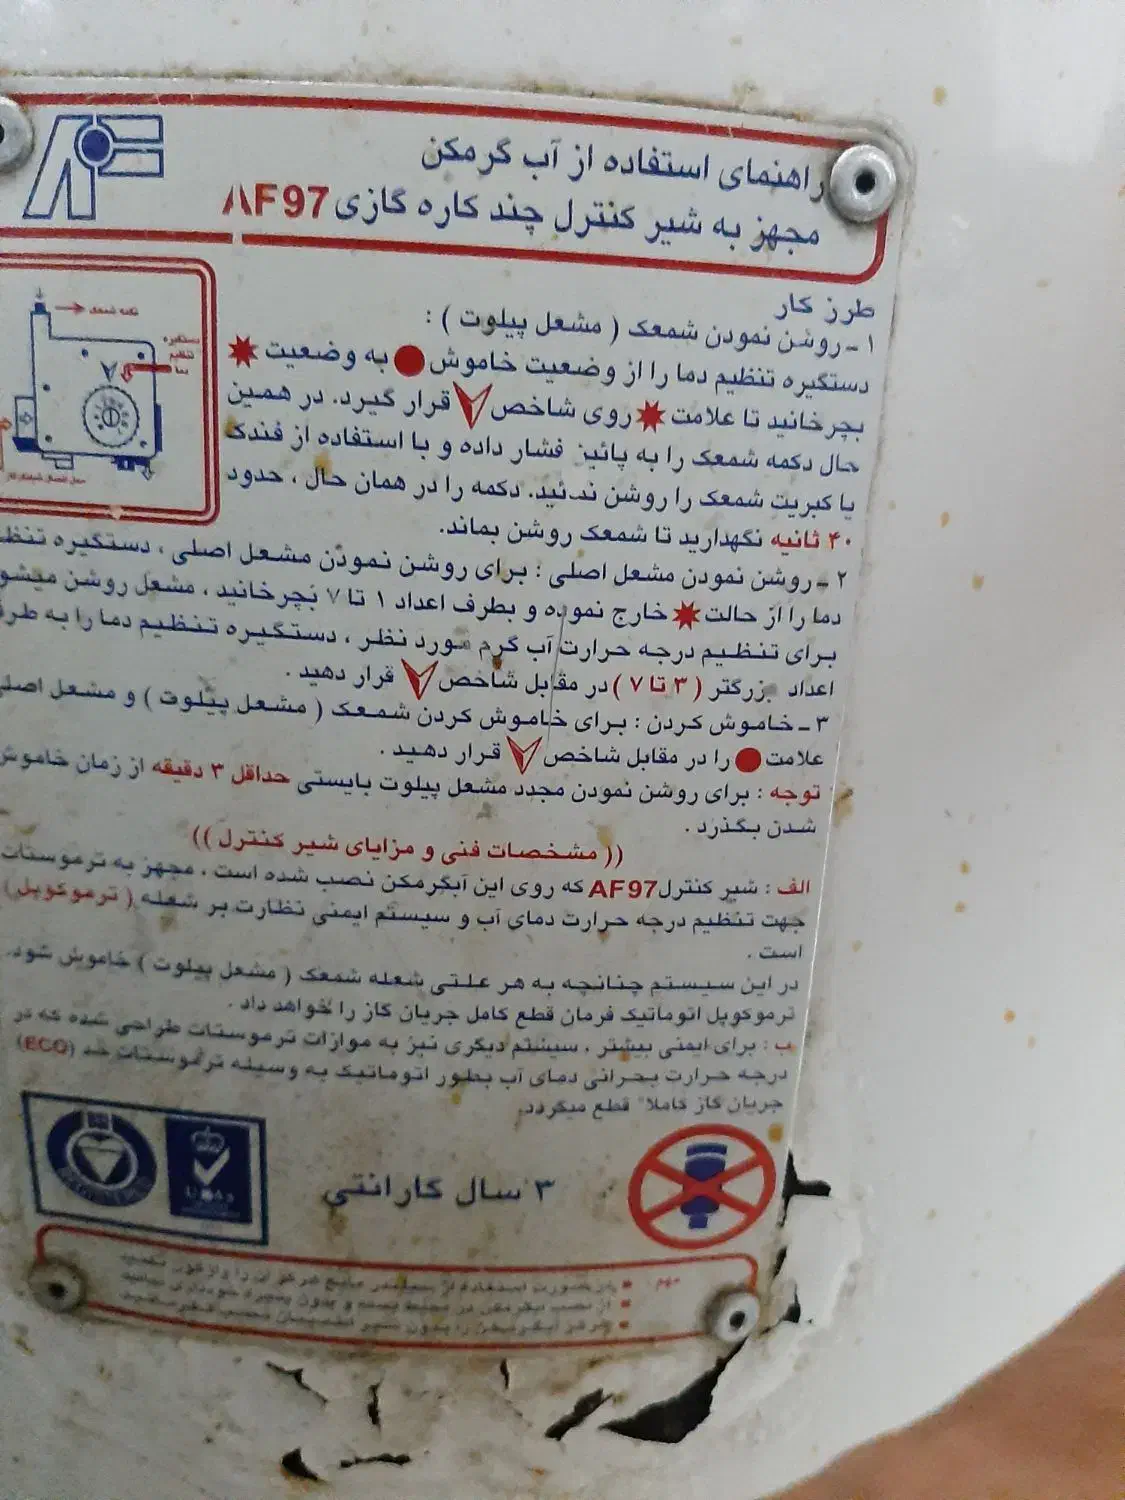 راهنمای استفاده از آب گرمکن
مجهز به شیر کنترل چند کاره گازی AF97
طرز کار
۱ - روشن نمودن شمعک ( مشعل پیلوت ) :
دستگیره تنظیم دما را از وضعیت خاموش به وضعیت
بچرخانید تا علامت روی شاخص قرار گیرد. در همین
حال دکمه شمعک را به پائین فشار داده و با استفاده از فندک
یا کبریت شمعک را روشن نمائید. دکمه را در همان حال ، حدود
۴۰ ثانیه نگهدارید تا شمعک روشن بماند.
دستگیره
تنظیم
دما
۲ - روشن نمودن مشعل اصلی : برای روشن نمودن مشعل اصلی ، دستگیره
دما را از حالت خارج نموده و بطرف اعداد ۱ تا ۷ بچرخانید ، مشعل روشن
برای تنظیم درجه حرارت آب گرم مورد نظر ، دستگیره تنظیم دما را به
اعداد بزرگتر ( ۳ تا ۷ ) در مقابل شاخص قرار دهید .
۳ - خاموش کردن : برای خاموش کردن شمعک ( مشعل پیلوت ) و مشعل
علامت را در مقابل شاخص قرار دهید .
توجه : برای روشن نمودن مجدد مشعل پیلوت بایستی حداقل ۳ دقیقه از زمان خاموش
شدن بگذرد .
(( مشخصات فنی و مزایای شیر کنترل ))
الف : شیر کنترل AF97 که روی این آبگرمکن نصب شده است ، مجهز به ترموستات
جهت تنظیم درجه حرارت دمای آب و سیستم ایمنی نظارت بر شعله ( ترموکوپل )
است .
در این سیستم چنانچه به هر علتی شعله شمعک ( مشعل پیلوت ) خاموش شود.
ترموکوپل اتوماتیک فرمان قطع کامل جریان گاز را خواهد داد .
ب : برای ایمنی بیشتر ، سیستم دیگری نیز به موازات ترموستات طراحی شده که در
درجه حرارت بحرانی دمای آب بطور اتوماتیک به وسیله ترموستات حد (ECO)
جریان گاز کاملا" قطع میگردد.
۳ سال گارانتی
مهم :